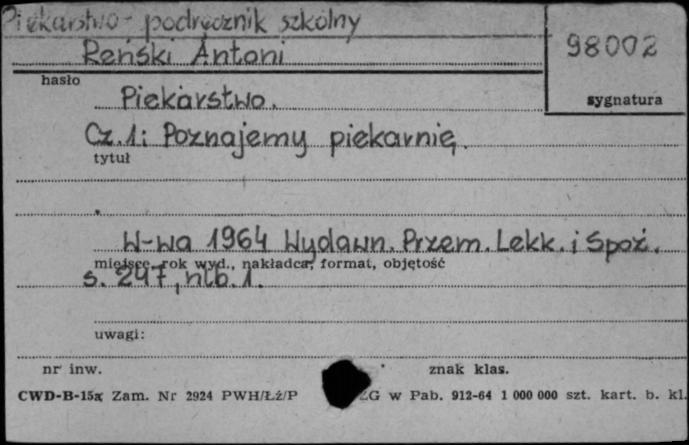 Piekarstwo - podręcznik szkolny
Reński Antoni
98002
hasło
sygnatura
Piekarstwo.
Cz.1: Poznajemy piekarnię.
tytuł
W-wa 1964 Wydawn. Przem. Lekk. i Spoż.
miejsce, rok wyd., nakładca, format, objętość
s. 247, nlb. 1.
uwagi:
nr inw.
znak klas.
CWD-B-15a Zam. Nr 2924 PWH/Łż/P ZG w Pab. 912-64 1 000 000 szt. kart. b. kl.